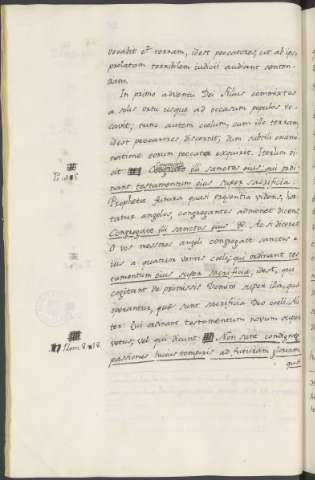 vocabit et terram, idest peccatores, ut ab ipso
prolatam terribilem iudicii audiant senten-
tiam.
In primo adventu Dei Filius commixtos
a solis ortu usque ad occasum populos vo-
cavit; nunc autem coelum, cum ille terram,
idest peccatores discernit, dum subtili exami-
natione eorum peccata exquirit. Iterum di-
cit Congregate illi sanctos eius, qui ordi-
nant testamentum eius super sacrificia.
Propheta futura quasi praesentia videns, hor-
tatur angelos, congregantes admonet dicens
Congregate illi sanctos eius &. Ac si diceret
O vos messores angeli congregate sanctos il-
lius a quatuor ventis coeli, qui ordinant tes-
tamentum eius super sacrificia, idest, qui
cogitant de promissis Domini super illa, quae
operantur, quae sunt sacrificia Deo coeli.
ter: Qui ordinant testamentum novum super
vetus; vel qui dicunt Non sunt condignae
passiones huius temporis ad futuram gloriam
quae
Rom. 8. 18.